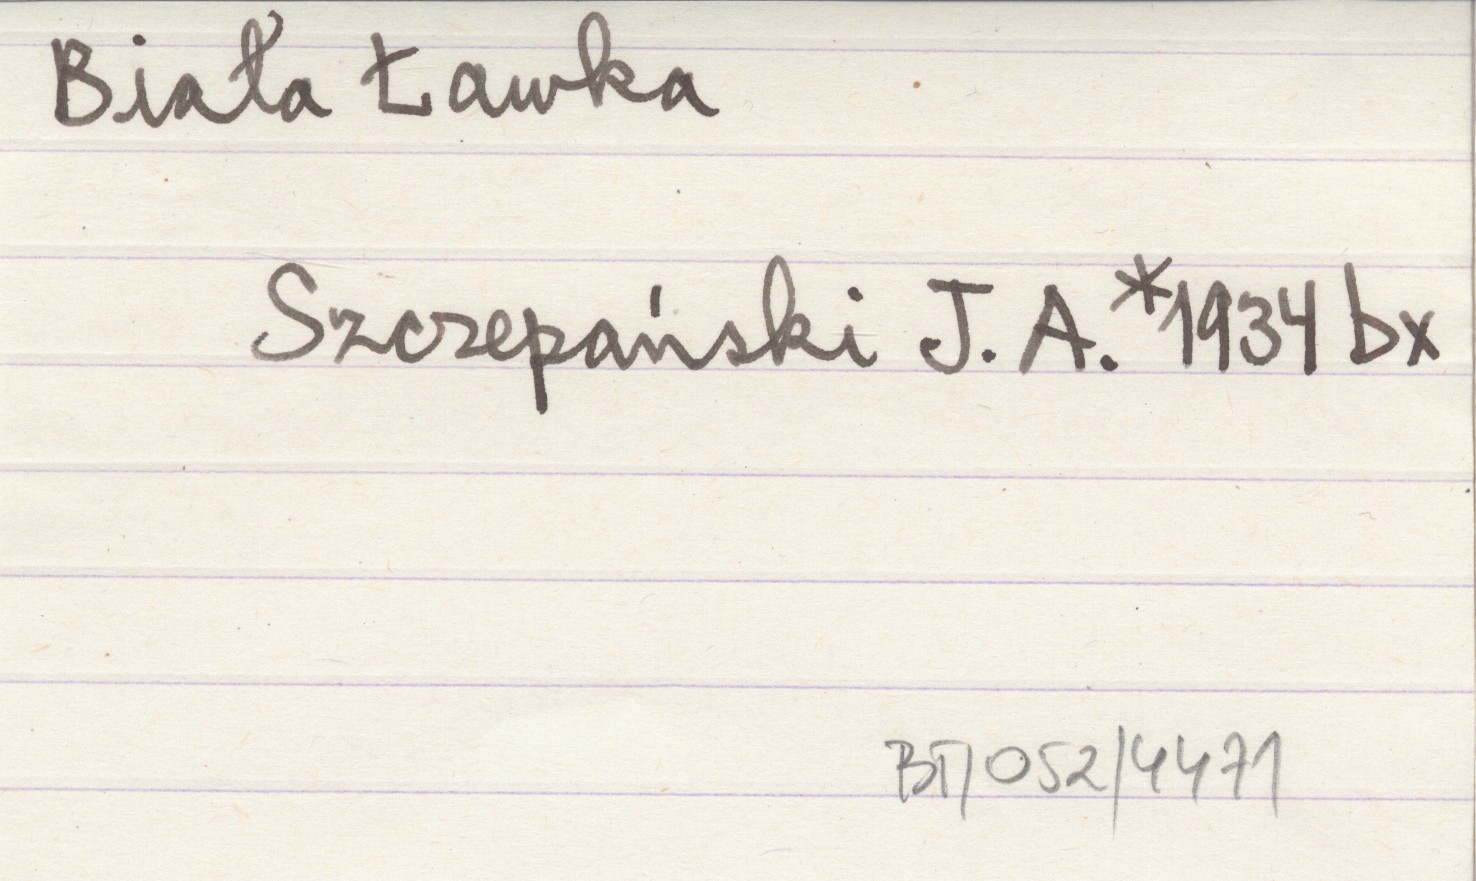 Biała Ławka
Szczepański J. A. *1934 bx
BT/052/4471